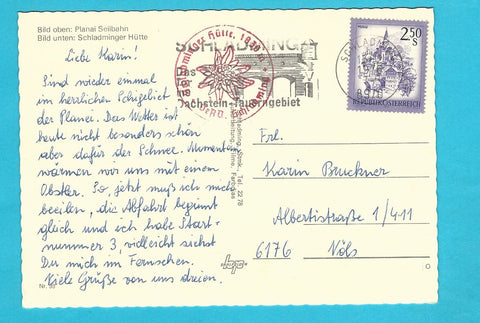 Bild oben: Planai Seilbahn
Bild unten: Schladminger Hütte
Liebe Karin!
Sind wieder einmal
im herrlichen Schigebiet
der Planei. Das Wetter ist
heute nicht besonders schön
aber dafür der Schnee. Momentan
wärmen wir uns mit einem
Obstler. So, jetzt muß ich mich
beeilen, die Abfahrt beginnt
gleich und ich habe Start-
nummer 3, vielleicht siehst
Du mich im Fernsehen.
Viele Grüße von uns dreien.
SCHLADMING
Das
Dachstein-Tauerngebiet
Schladminger Hütte, 1830 m
2,50
S
REPUBLIK ÖSTERREICH
SCHLADMING
8970
Tel. 22 78
Frl.
Karin Bruckner
Albertistraße 1/4.11
6176 Völs